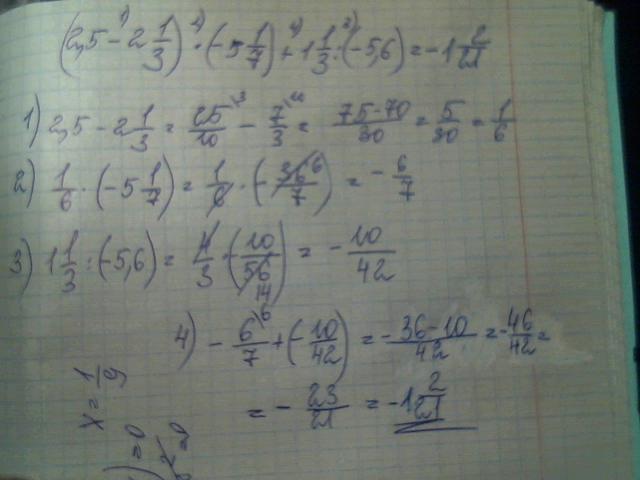 (2,5 - 2 1/3) · (-5 1/7) + 1 1/3 : (-5,6) = -1 2/21
1) 2,5 - 2 1/3 = 25/10 - 7/3 = 75-70/30 = 5/30 = 1/6
2) 1/6 · (-5 1/7) = 1/6 · (-36/7) = -6/7
3) 1 1/3 : (-5,6) = 4/3 · (-10/56) = -10/42
4) -6/7 + (-10/42) = -36-10/42 = -46/42 =
= -23/21 = -1 2/21
x = 1/9